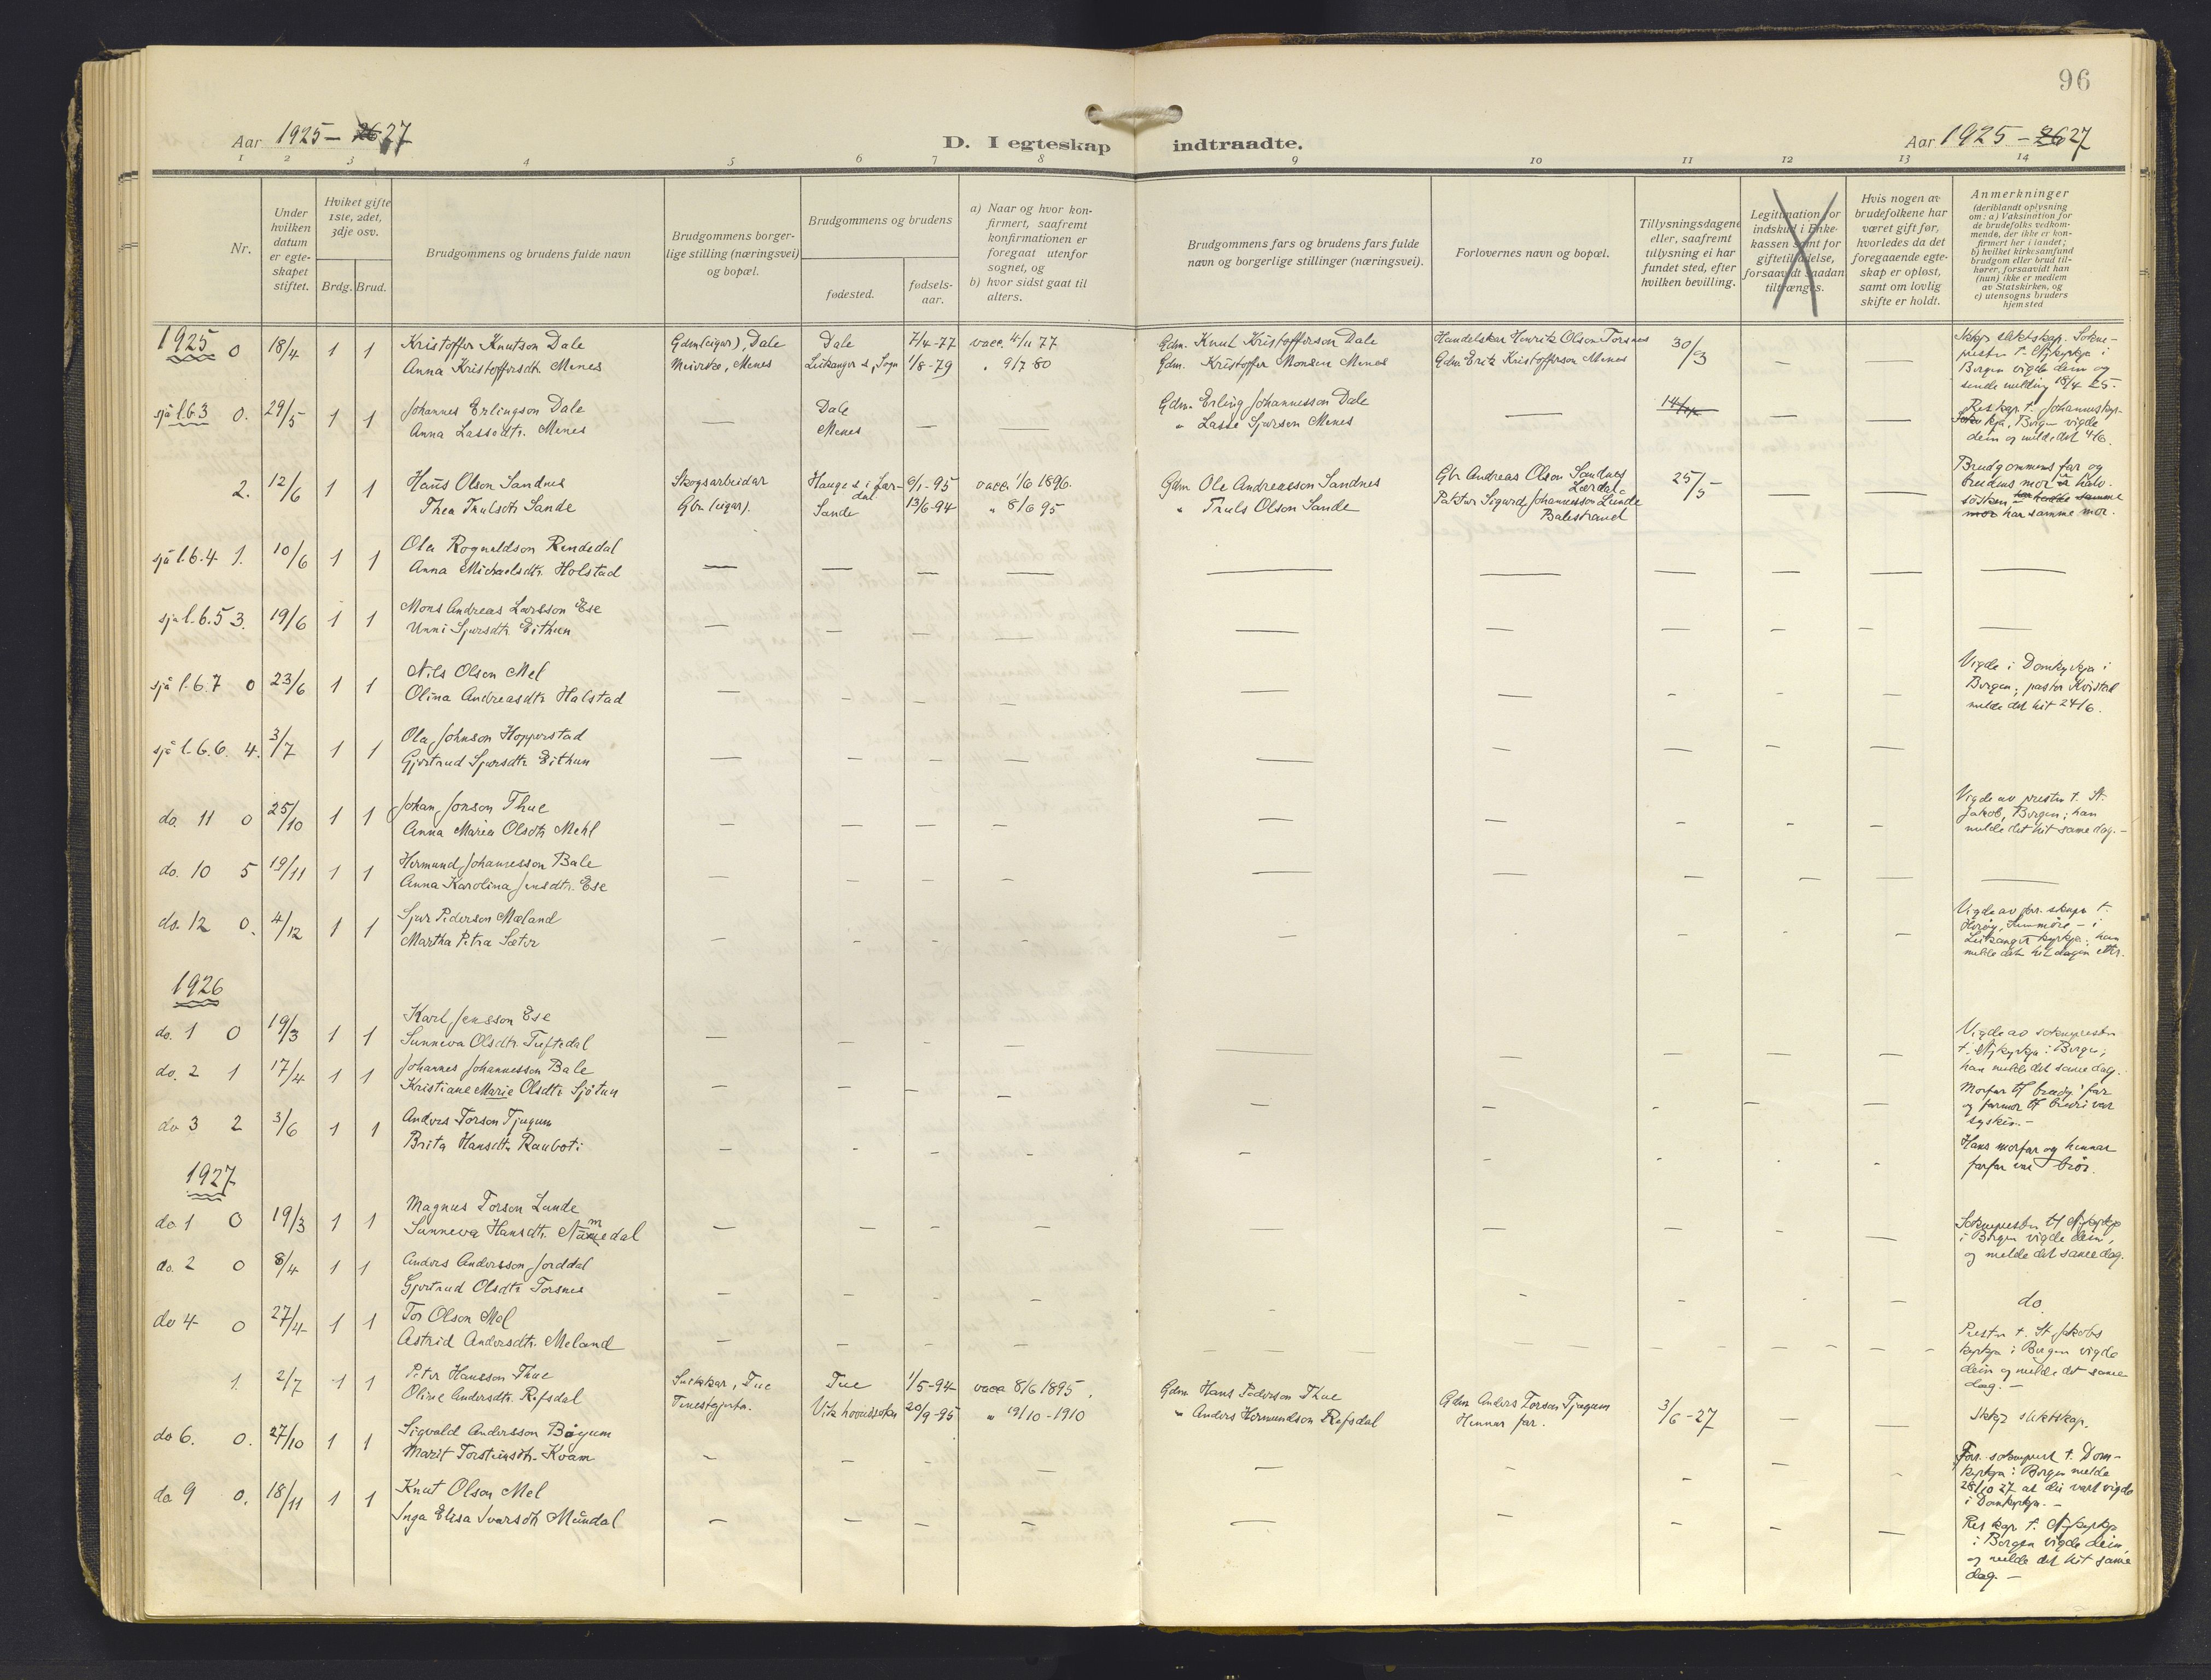 96
Aar 1925 - 26 27
D. I egteskap indtraadte.
Aar 1925 - 26 27
1 2 3 4 5 6 7 8 9 10 11 12 13 14
Nr.
Under hvilken datum er egte-skapet stiftet.
Hviket gifte 1ste, 2det, 3dje osv.
Brdg. Brud.
Brudgommens og brudens fulde navn
Brudgommens borger-lige stilling (næringsvei) og bopæl.
Brudgommens og brudens
fødested.
fødsels-aar.
a) Naar og hvor kon-firmert, saafremt konfirmationen er foregaat utenfor sognet, og
b) hvor sidst gaat til alters.
Brudgommens fars og brudens fars fulde navn og borgerlige stillinger (næringsvei).
Forlovernes navn og bopæl.
Tillysningsdagene eller, saafremt tillysning ei har fundet sted, efter hvilken bevilling.
Legitimation for indskud i Enke-kassen samt for giftetilladelse, forsaavidt saadan tiltrænges.
Hvis nogen av brudefolkene har været gift før, hvorledes da det foregaaende egte-skap er opløst, samt om lovlig skifte er holdt.
Anmerkninger
(deriblandt oplysning om: a) Vaksination for de brudefolks vedkom-mende, der ikke er kon-firmert her i landet; b) hvilket kirkesamfund brudgom eller brud til-hører, forsaavidt han (hun) ikke er medlem av Statskirken, og c) utensogns bruders hjemsted
1925 0 18/4 1 1 Kristoffer Knutson Dale Gdm (eigar), Dale Dale 7/4-77 vacc. 4/11 77 Gdm. Knut Kristofferson Dale Handelskar Henrik Olson Torsnes 30/3
Anna Kristoffersdtr. Menes Meierske, Menes Leikanger s, Sogn 1/8-79 " 9/7 80 Gdm. Kristoffer Monsen Menes Gdm Erik Kristofferson Menes
Sokne-prestn t. Nykyrkja i Bergen vigde dem og sende melding 18/4 25.
sjå l.b. 3 0. 29/5 1 1 Johannes Erlingson Dale — Dale — — Gdm. Erling Johannesson Dale — 14/ — —
Anna Lassedtr. Menes Menes " Lasse Sjurson Menes
Res kap. t. Johanneskyr-kja, Bergen vigde dem og melde det 4/6.
2. 12/6 1 1 Hans Olson Sandnes Skogsarbeidar Hauge s i Lær-dal 9/1-95 vacc. 1/6 1896. Gdm Ole Andreasson Sandnes Gbr Andreas Olson Sandnes Lærdal 25/5 — —
Thea Trulsdtr Sande Gbr (eigar). Sande 13/6-94 " 8/6 95 " Truls Olson Sande Sigurd Johannesson Lunde Balestrand
Brudgommens far og brudens mor er halv-søsken har samme mor.
sjå l.b. 4 1. 10/6 1 1 Ola Rognaldson Rendedal
Anna Michaelsdtr. Holstad — — — — — — — — — —
sjå l.b. 5 3. 19/6 1 1 Mons Andreas Larsson Ese
Unni Sjursdtr. Eithun — — — — — — — — — —
sjå l.b. 7 0 23/6 1 1 Nils Olson Mel
Olina Andreasdtr Halstad — — — — — — — — —
Vigde i Domkyrkja i Bergen; pastor Kvistad melde det hit 24/6.
sjå l.b. 6. 4. 3/7 1 1 Ola Johnson Hopperstad
Gjertrud Sjursdtr Eithun — — — — — — — — —
do. 11 0 25/10 1 1 Johan Jonson Thue
Anna Maria Olsdtr Mehl — — — — — — — — —
Vigde av presten t. St. Jakob, Bergen; han melde det hit same dag. —
do. 10 5 19/11 1 1 Hermund Johannesson Bale
Anna Karolina Jensdtr. Ese — — — — — — — — — —
do. 12 0. 4/12 1 1 Sjur Pederson Mæland
Martha Petra Sæter — — — — — — — — —
Vigde av t. Herøy, Sunnmøre — i Leikanger kyrkja; han melde det hit dagen ettr.
1926
do. 1 0 19/3 1 1 Karl Jensson Ese
Sunneva Olsdtr. Tuftedal — — — — — — — — —
Vigde av soknepresten t. Nykyrkja i Bergen; han melde det same dag.
do. 2 1 17/4 1 1 Johannes Johannesson Bale
Kristiane Marie Olsdtr Sjøtun — — — — — — — — —
Morfar til brudg. far og farmor til bruri var syskin. —
do 3 2 3/6 1 1 Anders Torson Tjugum
Brita Hansdtr Rauboti — — — — — — — — —
Hans morfar og hennar farfar brør.
1927
do 1 0 19/3 1 1 Magnus Torson Lunde
Sunneva Hansdtr. Nummedal — — — — — — — — —
Soknepresten til Nykyrkja i Bergen vigde dem, og melde det same dag.
do. 2 0 8/4 1 1 Anders Andersson Jorddal
Gjertrud Olsdtr Torsnes — — — — — — — — — do.
do 4 0 27/4 1 1 Tor Olson Mel
Astrid Andersdtr. Meland — — — — — — — — —
Presten t. St. Jakobs kyrkja i Bergen vigde dem og melde det same dag. —
1. 2/7 1 1 Peter Hansson Thue Snikkar, Tue Tue 1/5-94 vacc 8/6 1895. Gdm Hans Pederson Thue Gdm Anders Torson Tjugum 3/6-27 — —
Oline Andersdtr. Refsdal Tenestgjenta. Vik hovudsokn 20/9-95 " 19/10-1910 " Anders Hermundson Refsdal Hennar far.
do 6. 0. 27/10 1 1 Sigvald Andersson Bøyum
Marit Torsteinsdtr. Kvam — — — — — — — — —
sokneprest t. Dom-kyrkja i Bergen melde 28/10 27 at dei vart vigde i Domkyrkja. —
do 9 0. 18/11 1 1 Knut Olson Mel
Inga Elisa Ivarsdtr Mundal — — — — — — — — —
Res kap t. Nykyrkja i Bergen vigde dem, og melde det hit same dag. —